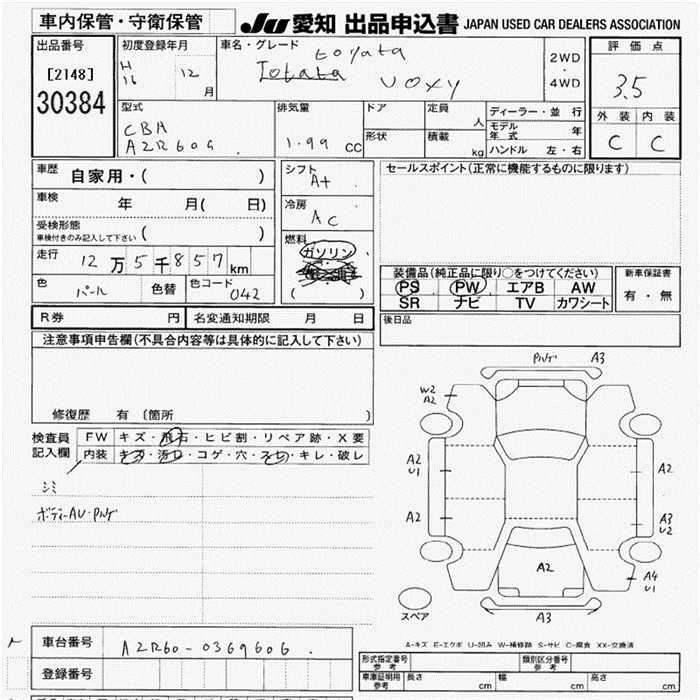 車内保管・守衛保管
JU 愛知 出品申込書 JAPAN USED CAR DEALERS ASSOCIATION
出品番号
[2148]
30384
初度登録年月
H
16 12
月
車名・グレード
toyata
Totata voxy
2WD
・
4WD
評価点
3.5
外装 内装
C C
型式
CBA
AZR60G
排気量
1.99 CC
ドア
形状
定員
人
積載
kg
ディーラー・並 行
モデル年式 年
ハンドル 左・右
車歴 自家用・( )
車検 年 月( 日)
受検形態
車検付きのみ記入して下さい ( )
走行 12万5千857km
色 パール 色替 色コード 042
シフト
A+
冷房
AC
燃料
ガソリン
( )
セールスポイント(正常に機能するものに限ります)
装備品(純正品に限り○をつけてください)
PS PW エアB AW
SR ナビ TV カワシート
新車保証書
有・無
後日品
R券 円 名変通知期限 月 日
注意事項申告欄(不具合内容等は具体的に記入して下さい)
修復歴 有 〔箇所 〕
検査員
記入欄
FW キズ・飛石・ヒビ割・リペア跡・X要
内装 キズ・汚レ・コゲ・穴・スレ・キレ・破レ
シミ
ボディーAU・Pルケ
Pルケ A3
W2
A2
A2
U1
A2
A2
A3
U2
A2
A4
U1
A3
スペア
A-キズ E-エクボ U-凹み W-補修跡 S-サビ C-腐食 XX-交換済
車台番号 AZR60-0369606
登録番号
形式指定番号
参考
類別区分番号
参考
車庫証明用
参考
長さ cm 幅 cm 高さ cm